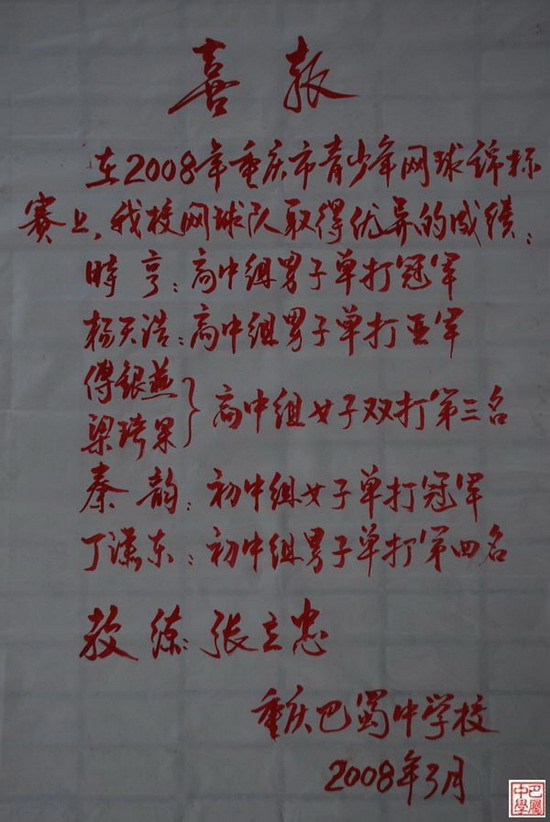 喜报
在2008年重庆市青少年网球锦标
赛上,我校网球队取得优异的成绩:
时亨:高中组男子单打冠军
杨天浩:高中组男子单打亚军
傅银燕
梁琦果
高中组女子双打第三名
秦韵:初中组女子单打冠军
丁潇东:初中组男子单打第四名
教练:张立忠
重庆巴蜀中学校
2008年3月
巴蜀中學